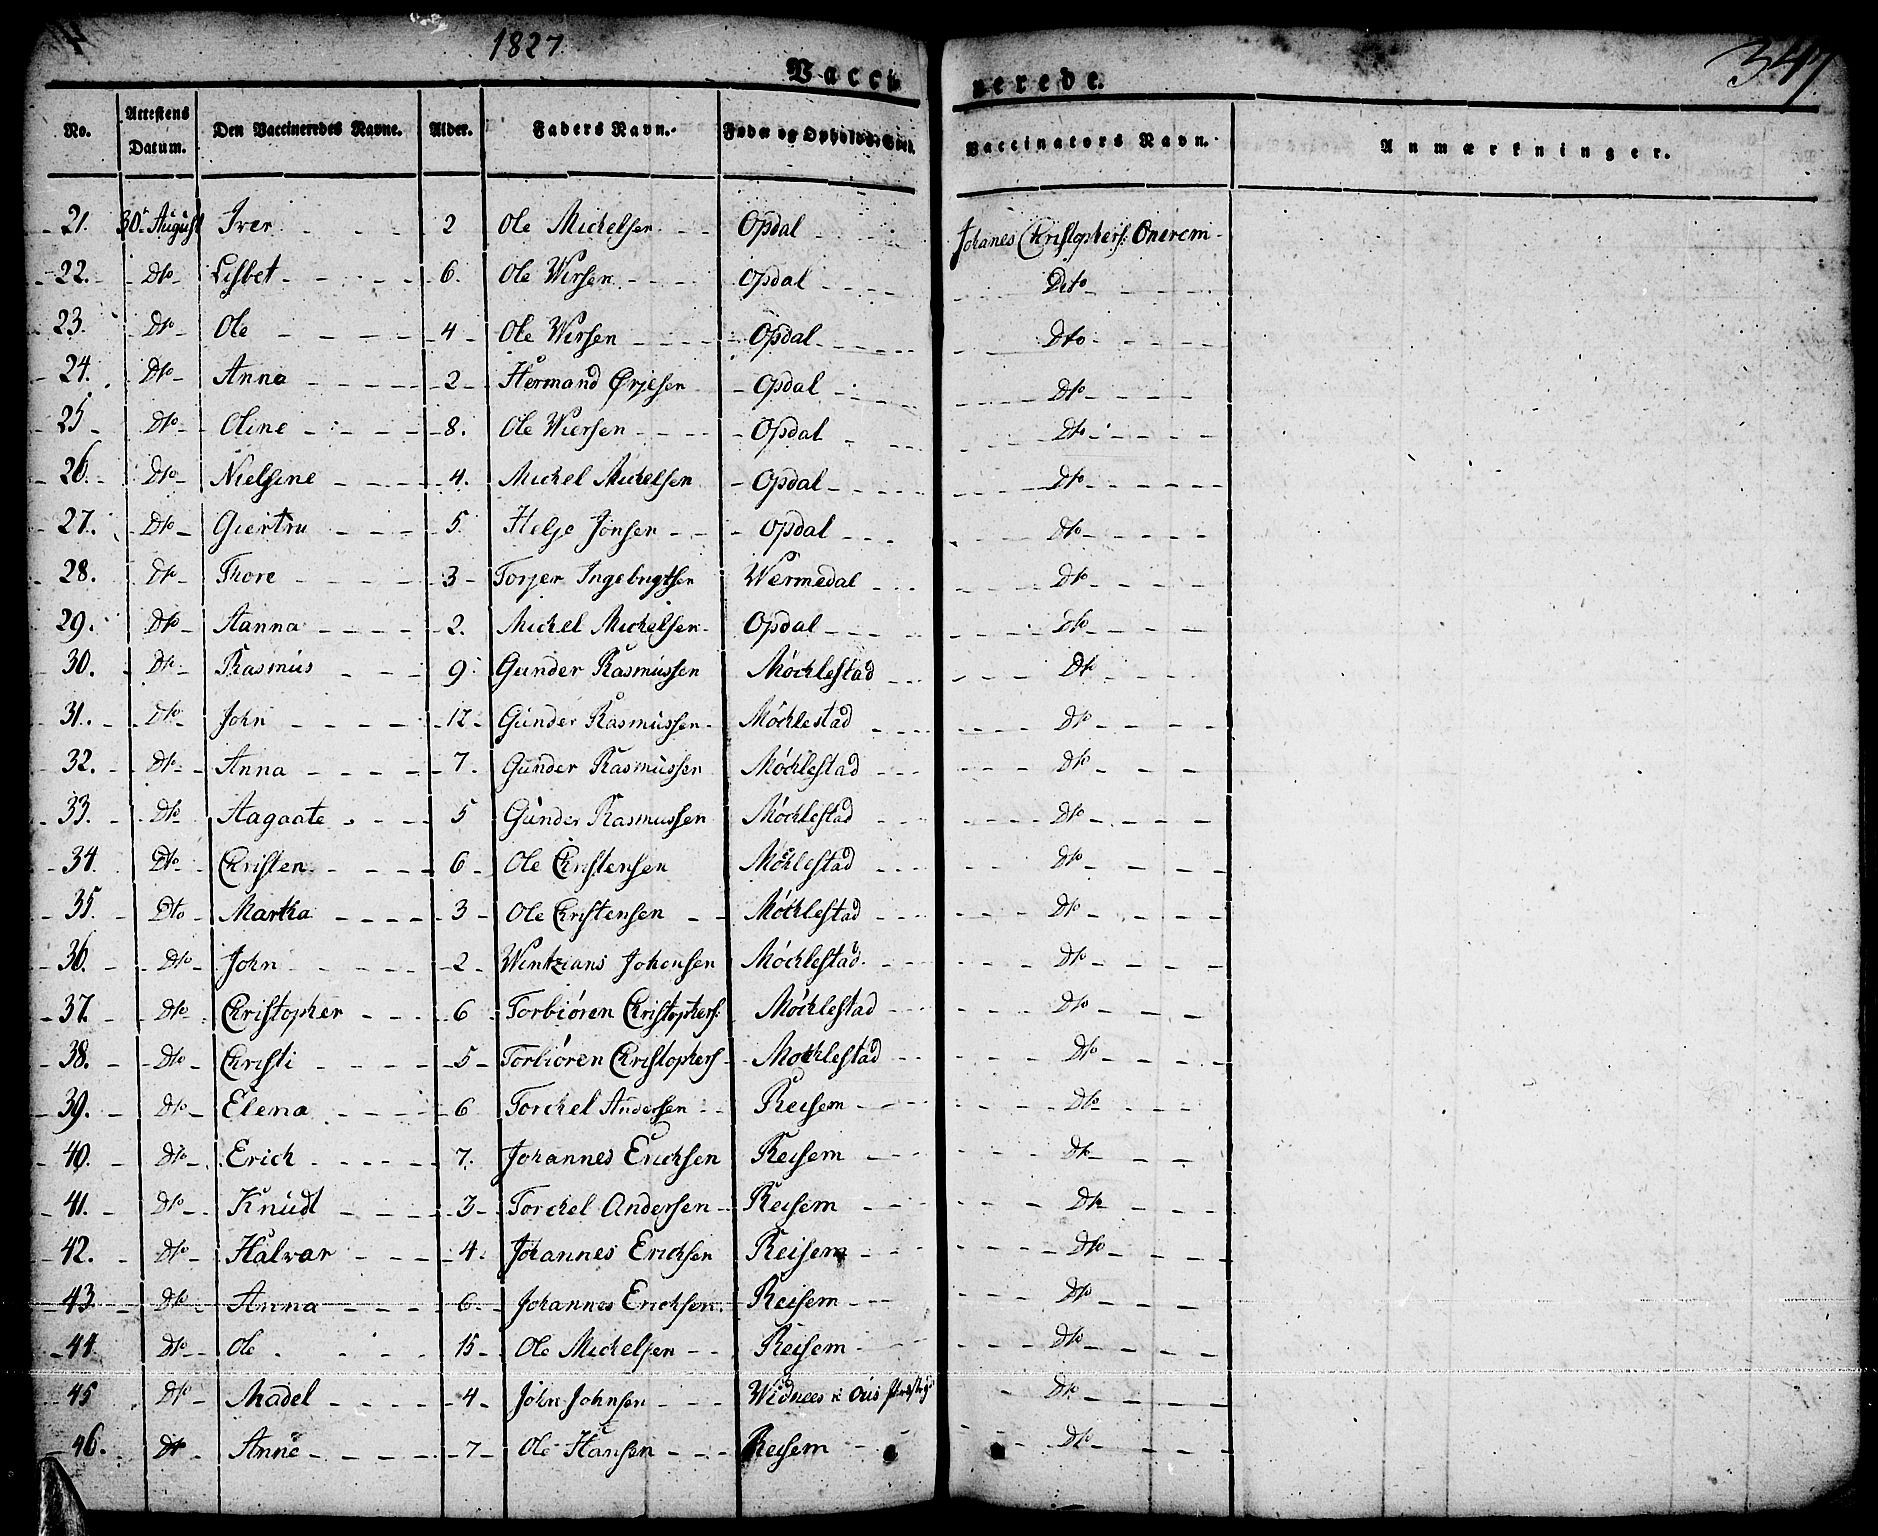 1827
347
Vaccinerede.
No. Attestens Datum. Den Vaccineredes Navne. Alder. Faders Navn. Føde og Opholds-Sted. Vaccinators Navn. Anmærkninger.
21. 30 August Iver 2 Ole Michelsen Opdal Johanes Christophers: Onerem
22. Dto Lisbet 6. Ole Wersen Opdal Dito
23. Dto Ole 4 Ole Wersen Opdal Dto
24. Dto Anna 2 Hermand Ørjesen Opdal Dto
25 Dto Oline 8. Ole Wiersen Opdal Dto
26. Dto Nielsine 4. Michel Michelsen Opdal Dto
27. Dto Giertru 5 Helje Jonsen Opdal Dto
28. Dto Thore 3 Torjer Ingebrigtsen Wermedal Dto
29. Dto Aanna 2. Michel Michelsen Opdal Dto
30. Dto Rasmus 9 Gunder Rasmussen Móchlestad Dto
31. Dto John 12 Gunder Rasmussen Móchlestad Dto
32. Dto Anna 7. Gunder Rasmussen Móchlestad Dto
33. Dto Aagaate 5 Gunder Rasmussen Móchlestad Dto
34. Dto Christen 6 Ole Christensen Móchlestad Dto
35. Dto Martha 3 Ole Christensen Móchlestad Dto
36. Dto John 2 Wintzians Johensen Móchlestad Dto
37. Dto Christopher 6 Torbióren Christophers: Móchlestad Dto
38. Dto Christi 5 Torbióren Christophers Mochlestad Dto
39. Dto Elena 6 Torchel Andersen Reisem Dto
40. Dto Erich 7. Johannes Erichsen Reisem Dto
41. Dto Knudt 3 Torchel Andersen Reisem Dto
42. Dto Halvar 4. Johannes Erichsen Reisem Dto
43. Dto Anna 6 Johannes Erichsen Reisem Dto
44. Dto Ole 15 Ole Michelsen Reisem Dto
45 Dto Madel 4 John Johnsen Widnees Dto
46. Dto Anne 7 Ole Hansen Reisem Dto